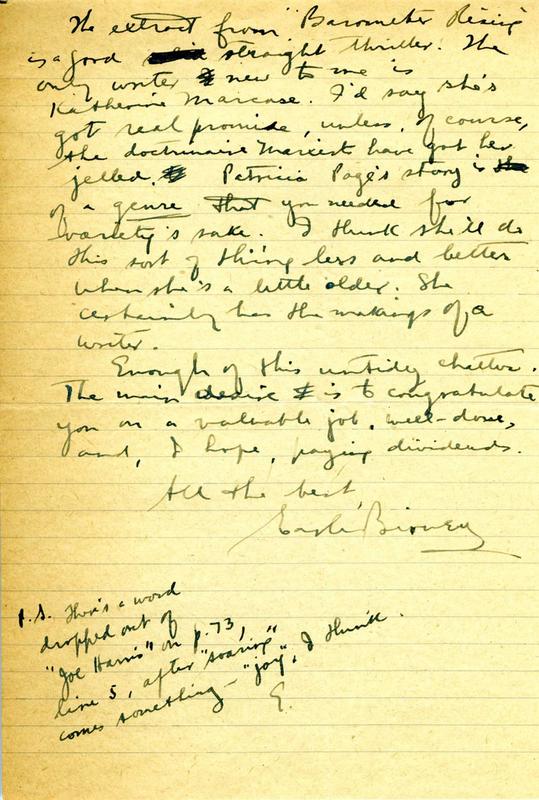 The extract from "Barometer Rising"
is a good straight thriller. The
only writer new to me is
Katherine Marcuse. I'd say she's
got real promise, unless, of course,
the doctrinaire Marxist have got her
jelled. Patricia Page's story is
of a genre that you needed for
variety's sake. I think she'll do
this sort of thing less and better
when she's a little older. She
certainly has the makings of a
writer.
Enough of this untidy chatter.
The main desire is to congratulate
you on a valuable job, well-done,
and, I hope, paying dividends.
All the best,
Earle Birney
P.S. There's a word
dropped out of
"Joe Harris" on p. 73,
line 5, after "soaring"
comes something - "joy", I think.
E.